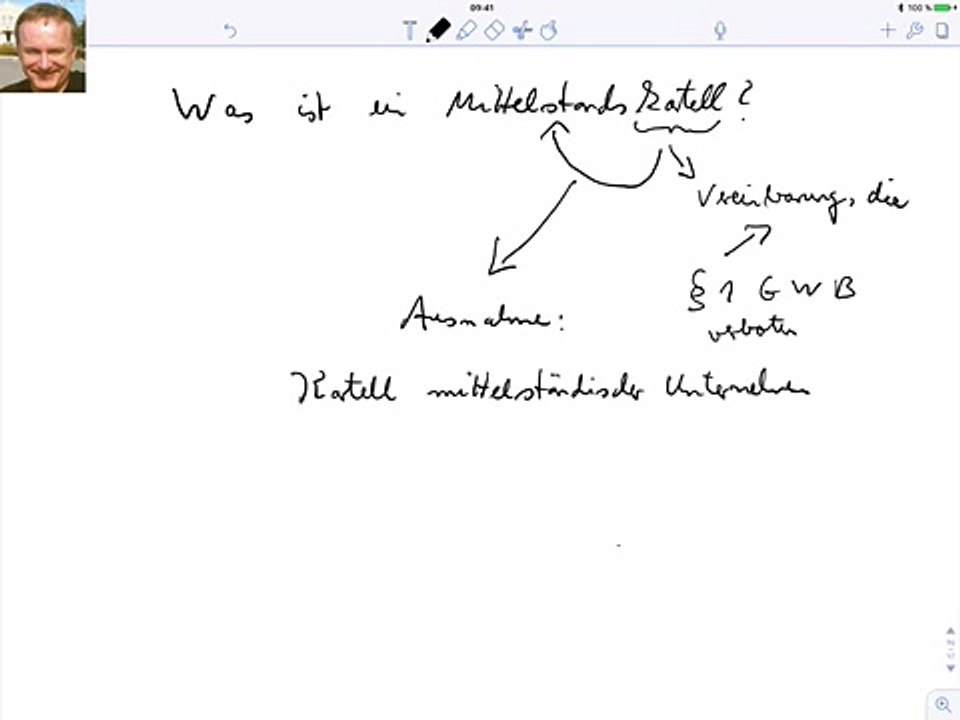 09:41
100 %
T
Was ist ein Mittelstands Katell?
Vereinbarung, die
§ 1 GWB
verboten
Ausnahme:
Katell mittelständischer Unternehmen